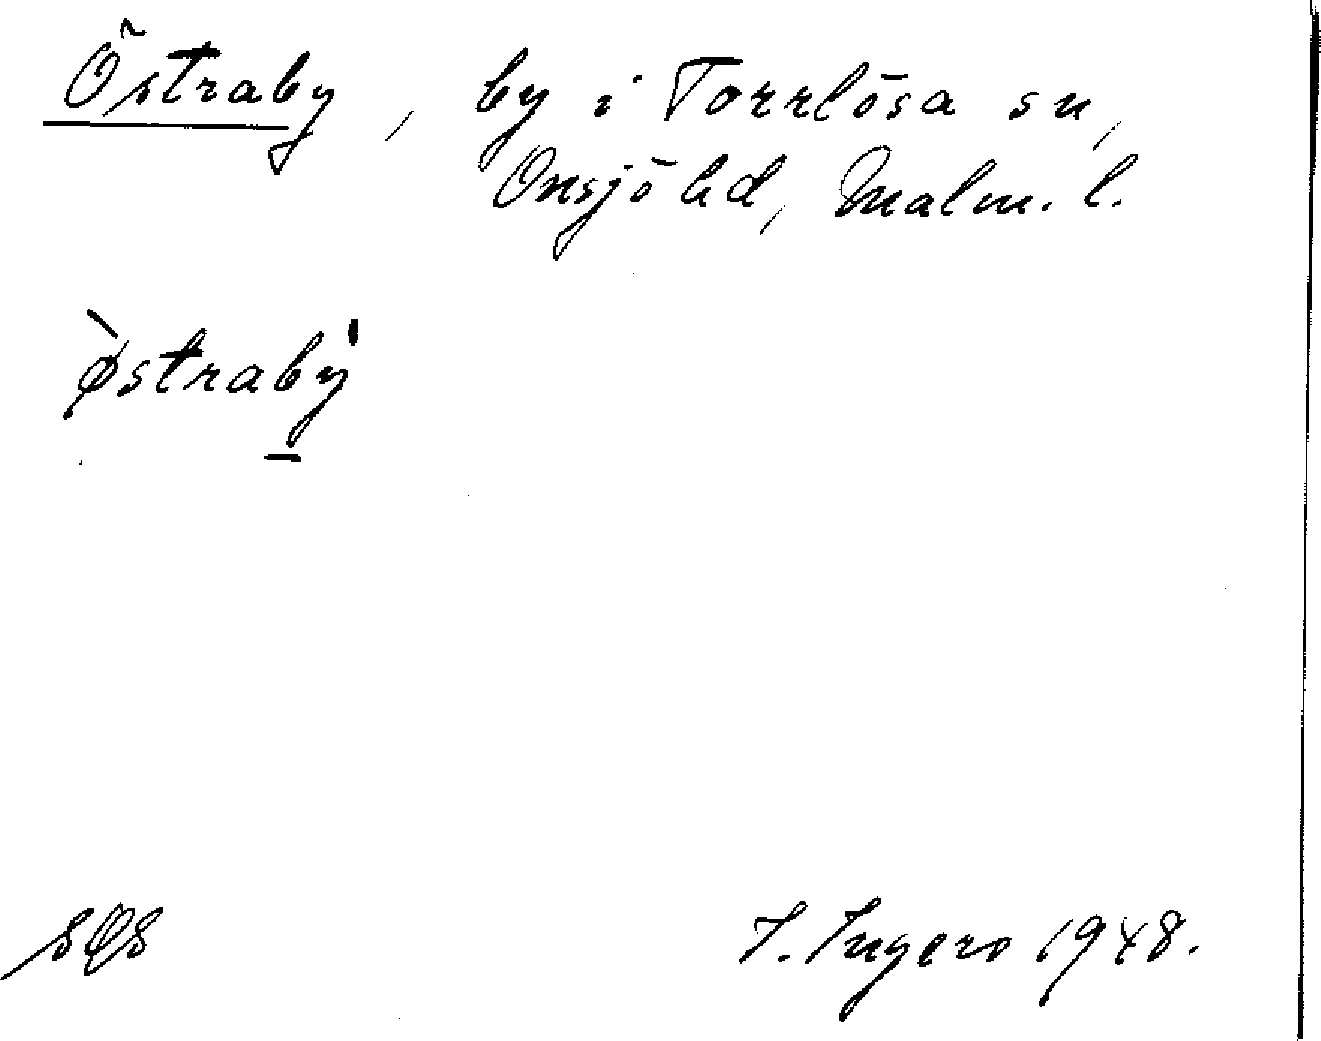 Östraby, by i Torrlösa sn,
Onsjö hd, Malm. l.
østraby
I. Ingers 1948.